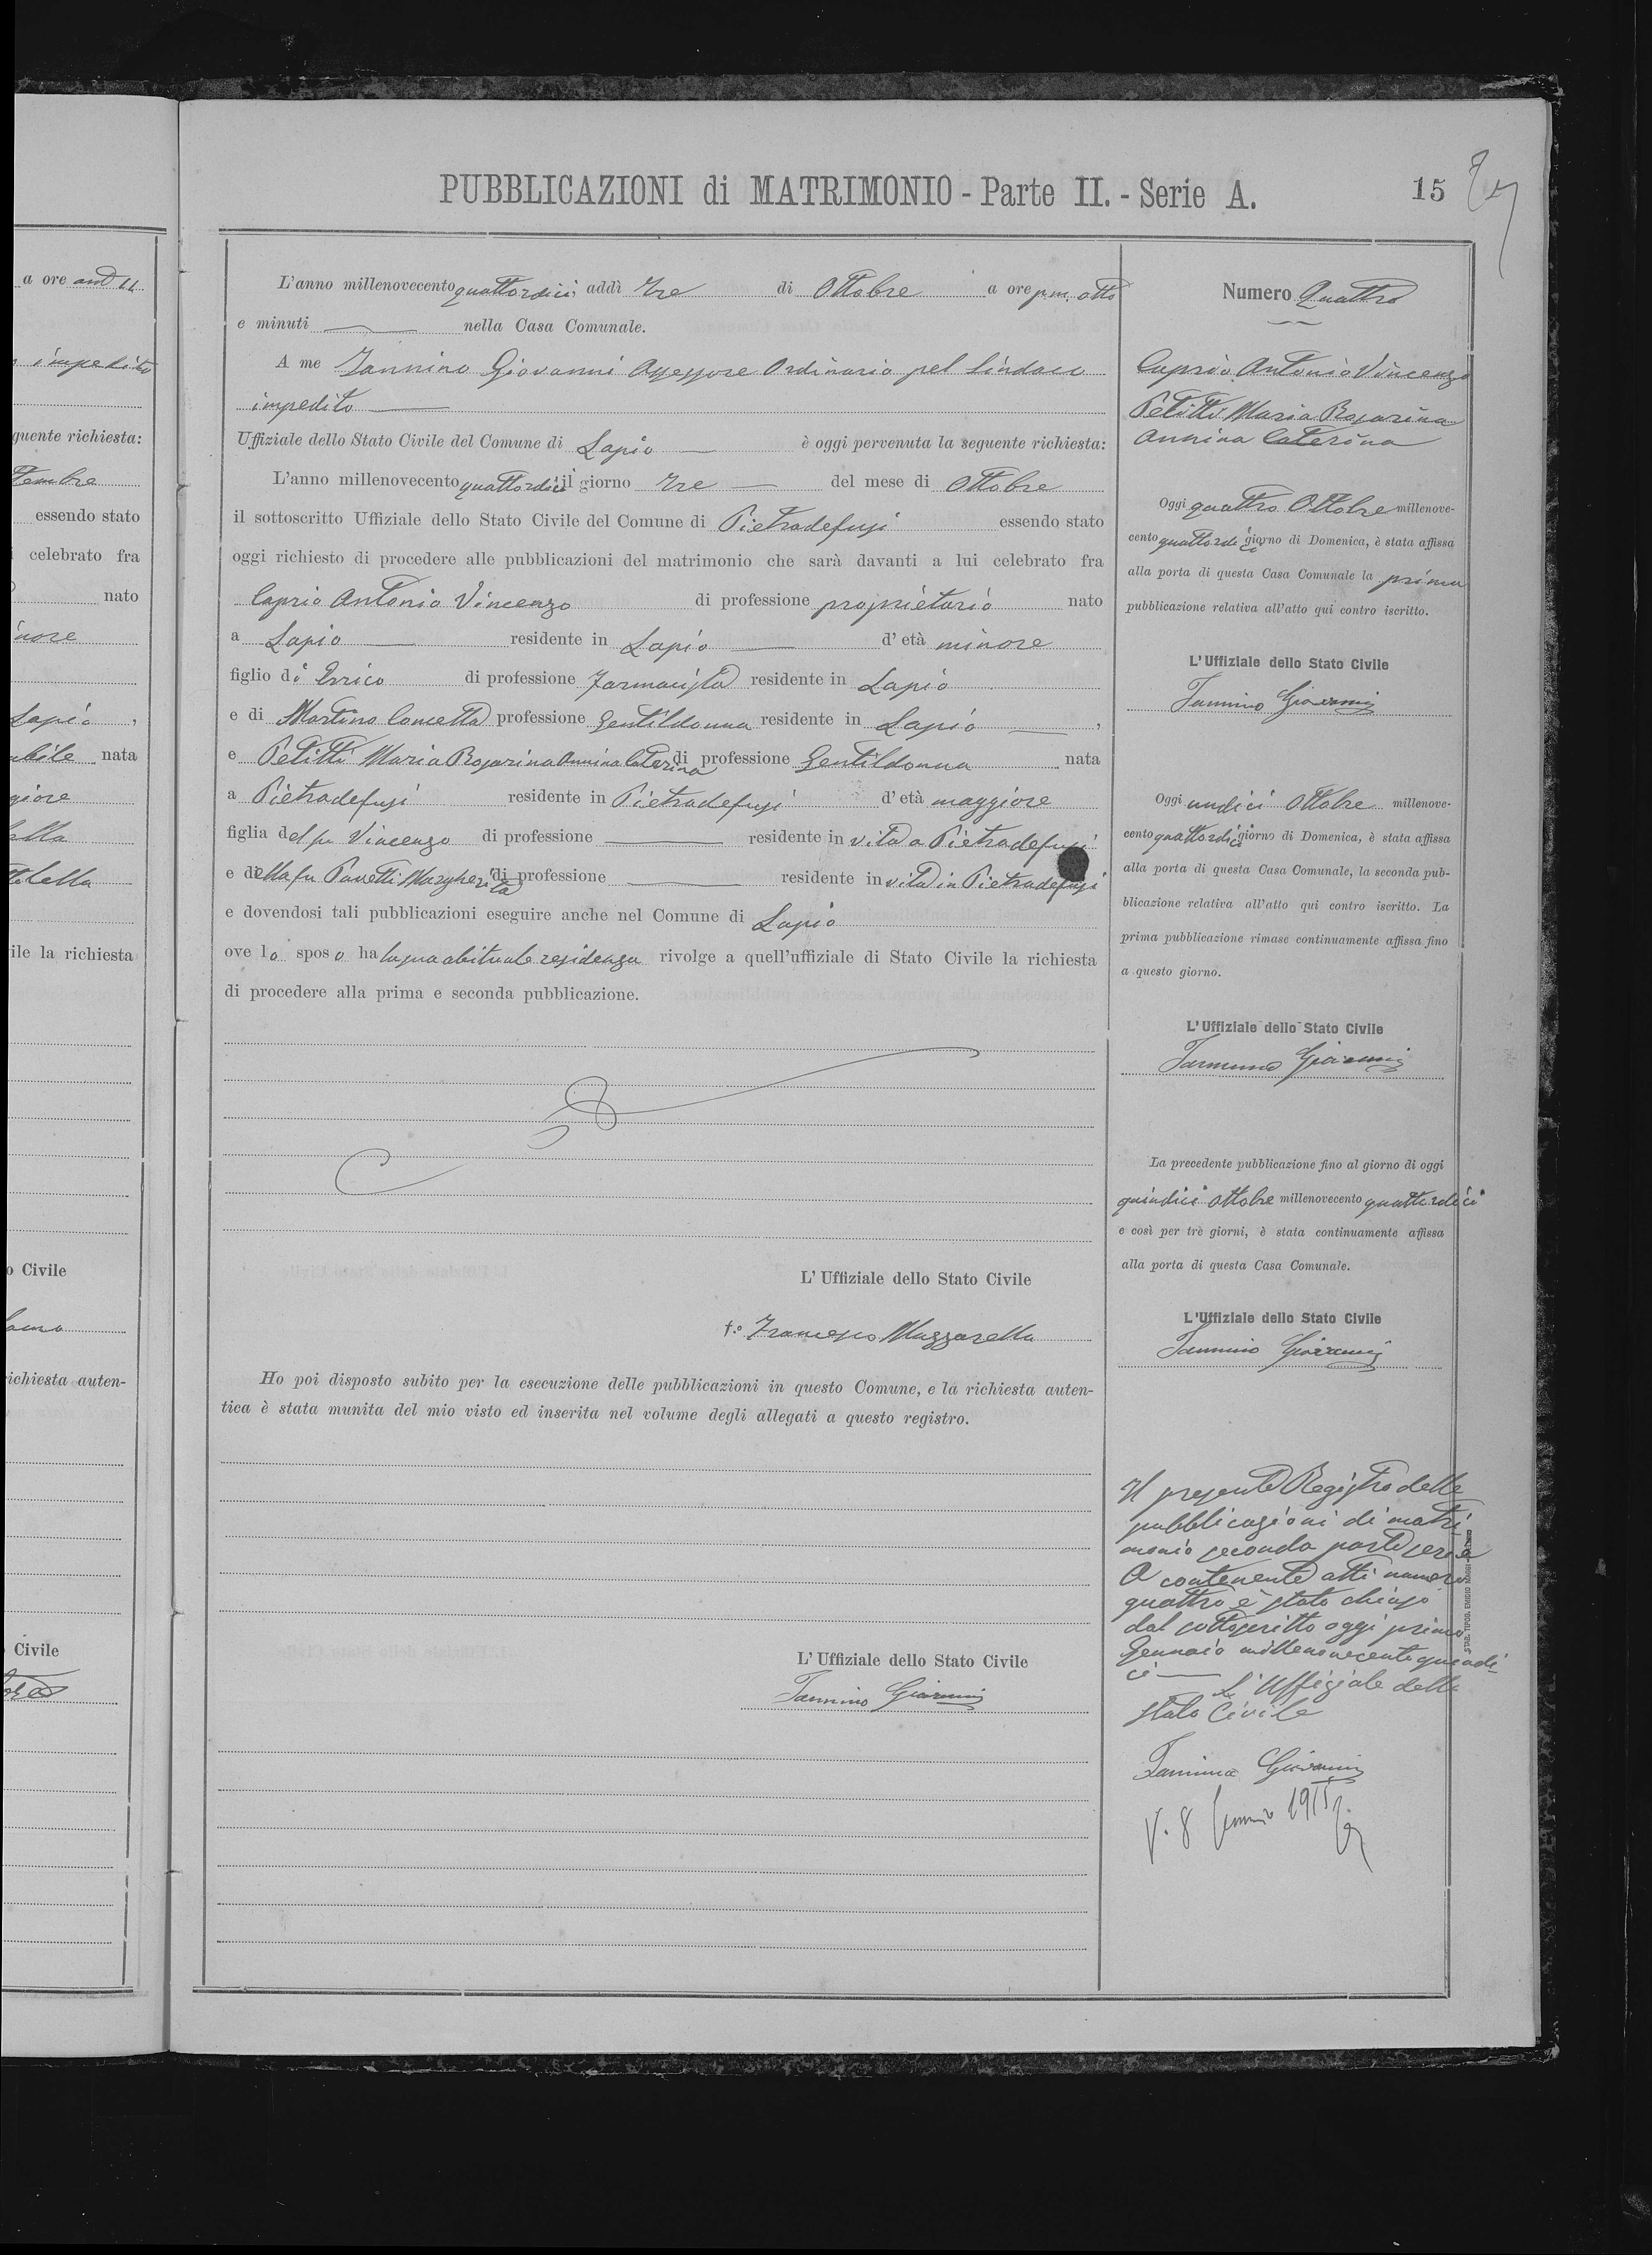 PUBBLICAZIONI di MATRIMONIO - Parte II. - Serie A.
15
L'anno millenovecento quattordici addì Tre di Ottobre a ore p.m. otto
e minuti nella Casa Comunale.
A me Iannino Giovanni Assessore Ordinario pel Sindaco
impedito
Uffiziale dello Stato Civile del Comune di Lapio è oggi pervenuta la seguente richiesta:
L'anno millenovecento quattordici il giorno Tre del mese di Ottobre
il sottoscritto Uffiziale dello Stato Civile del Comune di Pietradefusi essendo stato
oggi richiesto di procedere alle pubblicazioni del matrimonio che sarà davanti a lui celebrato fra
Caprio Antonio Vincenzo di professione proprietario nato
a Lapio residente in Lapio d'età minore
figlio di Errico di professione Farmacista residente in Lapio
e di Martino Concetta professione Gentildonna residente in Lapio ,
e Petitti Maria Rosarina Annina Caterina di professione Gentildonna nata
a Pietradefusi residente in Pietradefusi d'età maggiore
figlia del fu Vincenzo di professione residente in vita a Pietradefusi
e della fu Panetti Margherita di professione residente in vita in Pietradefusi
e dovendosi tali pubblicazioni eseguire anche nel Comune di Lapio
ove lo sposo ha la sua abituale residenza rivolge a quell'uffiziale di Stato Civile la richiesta
di procedere alla prima e seconda pubblicazione.
L'Uffiziale dello Stato Civile
f.o Francesco Mazzarella
Ho poi disposto subito per la esecuzione delle pubblicazioni in questo Comune, e la richiesta auten-
tica è stata munita del mio visto ed inserita nel volume degli allegati a questo registro.
L'Uffiziale dello Stato Civile
Iannino Giovanni
Numero Quattro
Caprio Antonio Vincenzo
Petitti Maria Rosarina
Annina Caterina
Oggi quattro Ottobre millenove-
cento quattordici giorno di Domenica, è stata affissa
alla porta di questa Casa Comunale la prima
pubblicazione relativa all'atto qui contro iscritto.
L'Uffiziale dello Stato Civile
Iannino Giovanni
Oggi undici Ottobre millenove-
cento quattordici giorno di Domenica, è stata affissa
alla porta di questa Casa Comunale, la seconda pub-
blicazione relativa all'atto qui contro iscritto. La
prima pubblicazione rimase continuamente affissa fino
a questo giorno.
L'Uffiziale dello Stato Civile
Iannino Giovanni
La precedente pubblicazione fino al giorno di oggi
quindici Ottobre millenovecento quattordici
e così per trè giorni, è stata continuamente affissa
alla porta di questa Casa Comunale.
L'Uffiziale dello Stato Civile
Iannino Giovanni
Il presente Registro delle
pubblicazioni di matri
monio seconda parte serie
A contenente atti numero
quattro è stato chiuso
dal sottoscritto oggi primo
Gennaio millenovecentoquindi-
ci
L'Uffiziale dello
Stato Civile
Iannino Giovanni
V. 8 Gennaio 1915
a ore
impedito
guente richiesta:
tembre
essendo stato
celebrato fra
nato
inore
Lapio ,
nata
giore
ile la richiesta
o Civile
richiesta auten-
Civile